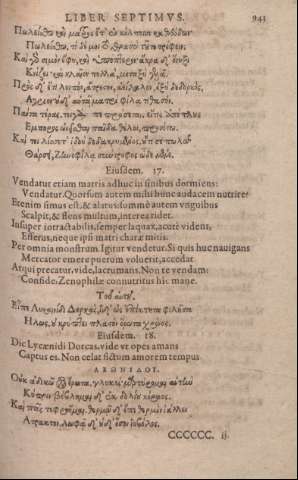 LIBER SEPTIMVS. 941
Πωλείσθω καὶ ματρὸς ἔτ' ἐν κόλποισι καθεύδων·
Πωλείσθω. τί δέ μοι τὸ θρασὺ τοῦτο τρέφειν;
Καὶ γὰρ σιμὸν ἔφυ, καὶ ὑπόπτερον· ἄκρα δ' ὄνυξι
Κνίζει· καὶ κλαῖον πολλὰ, μεταξὺ γελᾷ.
Πρὸς δ' ἔτι λοιπὸν, ἄτρεστον, ἀείλαλον, ὀξὺ δεδορκὸς,
Ἄγριον· οὐδ' αὐτᾷ ματρὶ φίλᾳ τιθασόν.
Πάντα τέρας. τοιγὰρ πεπράσεται. εἴ τις ἀπόπλους
Ἔμπορος ὠνεῖσθαι παῖδα θέλει, προσίτω.
Καί τοι λίσσετ' ἰδοὺ δεδακρυμένος. οὔ σ' ἔτι πωλῶ·
Θάρσει, Ζηνοφίλᾳ σύντροφος ὧδε μένε.
Eiusdem. 17.
Vendatur etiam matris adhuc in sinibus dormiens:
Vendatur. Quorsum autem mihi hunc audacem nutrire?
Etenim simus est, & alatus: summè autem vnguibus
Scalpit, & flens multum, interea ridet.
Insuper intractabilis, semper laquax, acutè videns,
Efferus, neque ipsi matri charæ mitis.
Per omnia monstrum. Igitur vendetur. Si quis huc nauigans
Mercator emere puerum voluerit, accedat.
Atqui precatur, vide, lacrumans. Non te vendam:
Confide. Zenophilæ connutritus hic mane.
Τοῦ αὐτοῦ.
Εἰπὲ Λυκαινίδι Δορκὰς, ἴδ' ὡς ἐπίτηκτα φιλοῦσα
Ἥλως, οὐ κρύπτει πλαστὸν ἔρωτα χρόνος.
Eiusdem. 18.
Dic Lycænidi Dorcas. vide vt opes amans
Captus es. Non celat fictum amorem tempus
ΛΕΩΝΙΔΟΥ.
Οὐκ ἀδικέω τὸν ἔρωτα, γλυκύς· μαρτύρομαι αὐτὴν
Κύπριν· βέβλημαι δ' ἐκ δολίου κέραος.
Καὶ πᾶς τεφροῦμαι. θερμὸν δ' ἐπὶ θερμῷ ἰάλλει
Ἄτρακτον. λωφᾷ δ' οὐδ' ὅσον ἰοβόλος.
CCCCCC. ij